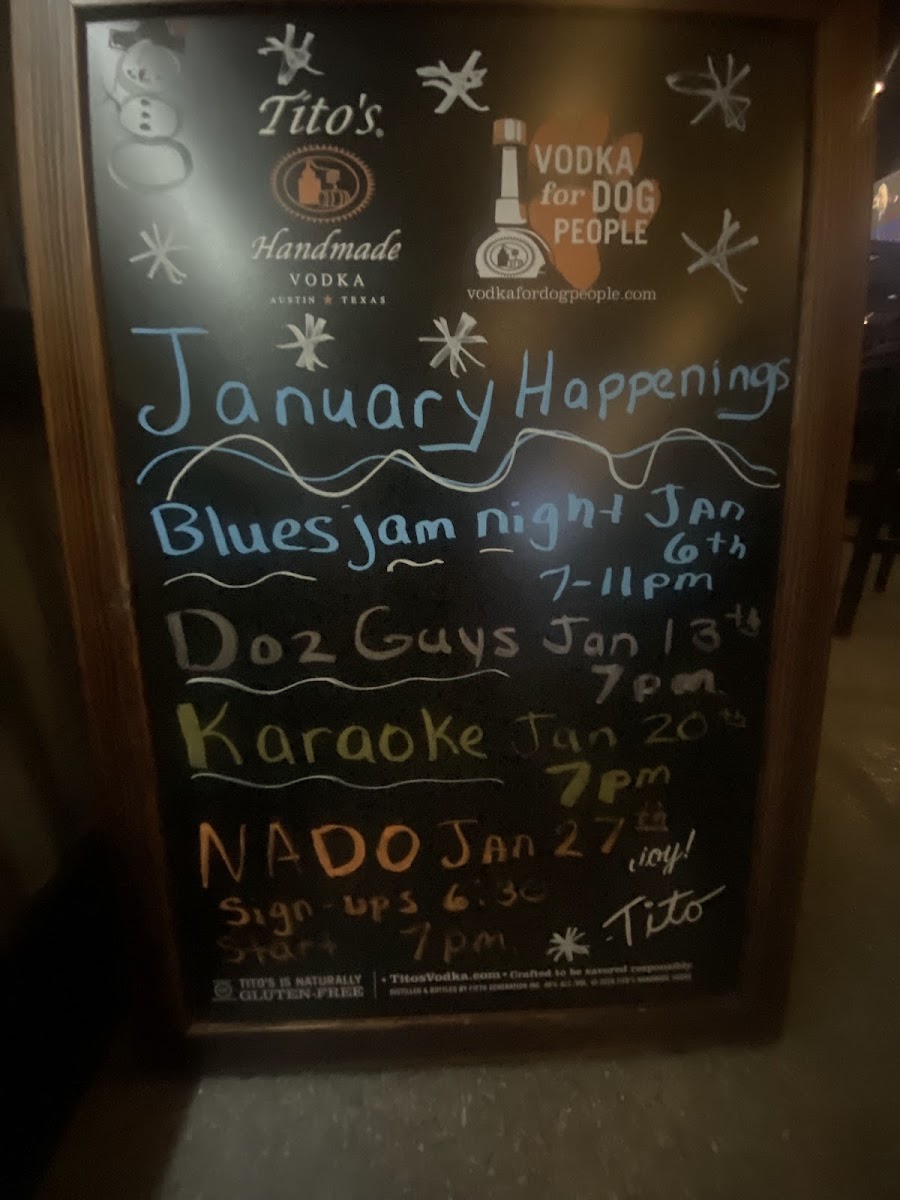 Tito's®
Handmade
VODKA
AUSTIN ★ TEXAS
VODKA
for DOG
PEOPLE
vodkafordogpeople.com
January Happenings
Blues jam night JAN
6th
7-11pm
Doz Guys Jan 13th
7pm
Karaoke Jan 20th
7pm
NADO JAN 27th
joy!
Sign-ups 6:30
Start 7pm
-Tito
TITO'S IS NATURALLY
GLUTEN-FREE
• TitosVodka.com • Crafted to be savored responsibly
DISTILLED & BOTTLED BY FIFTH GENERATION INC. 40% ALC./VOL.